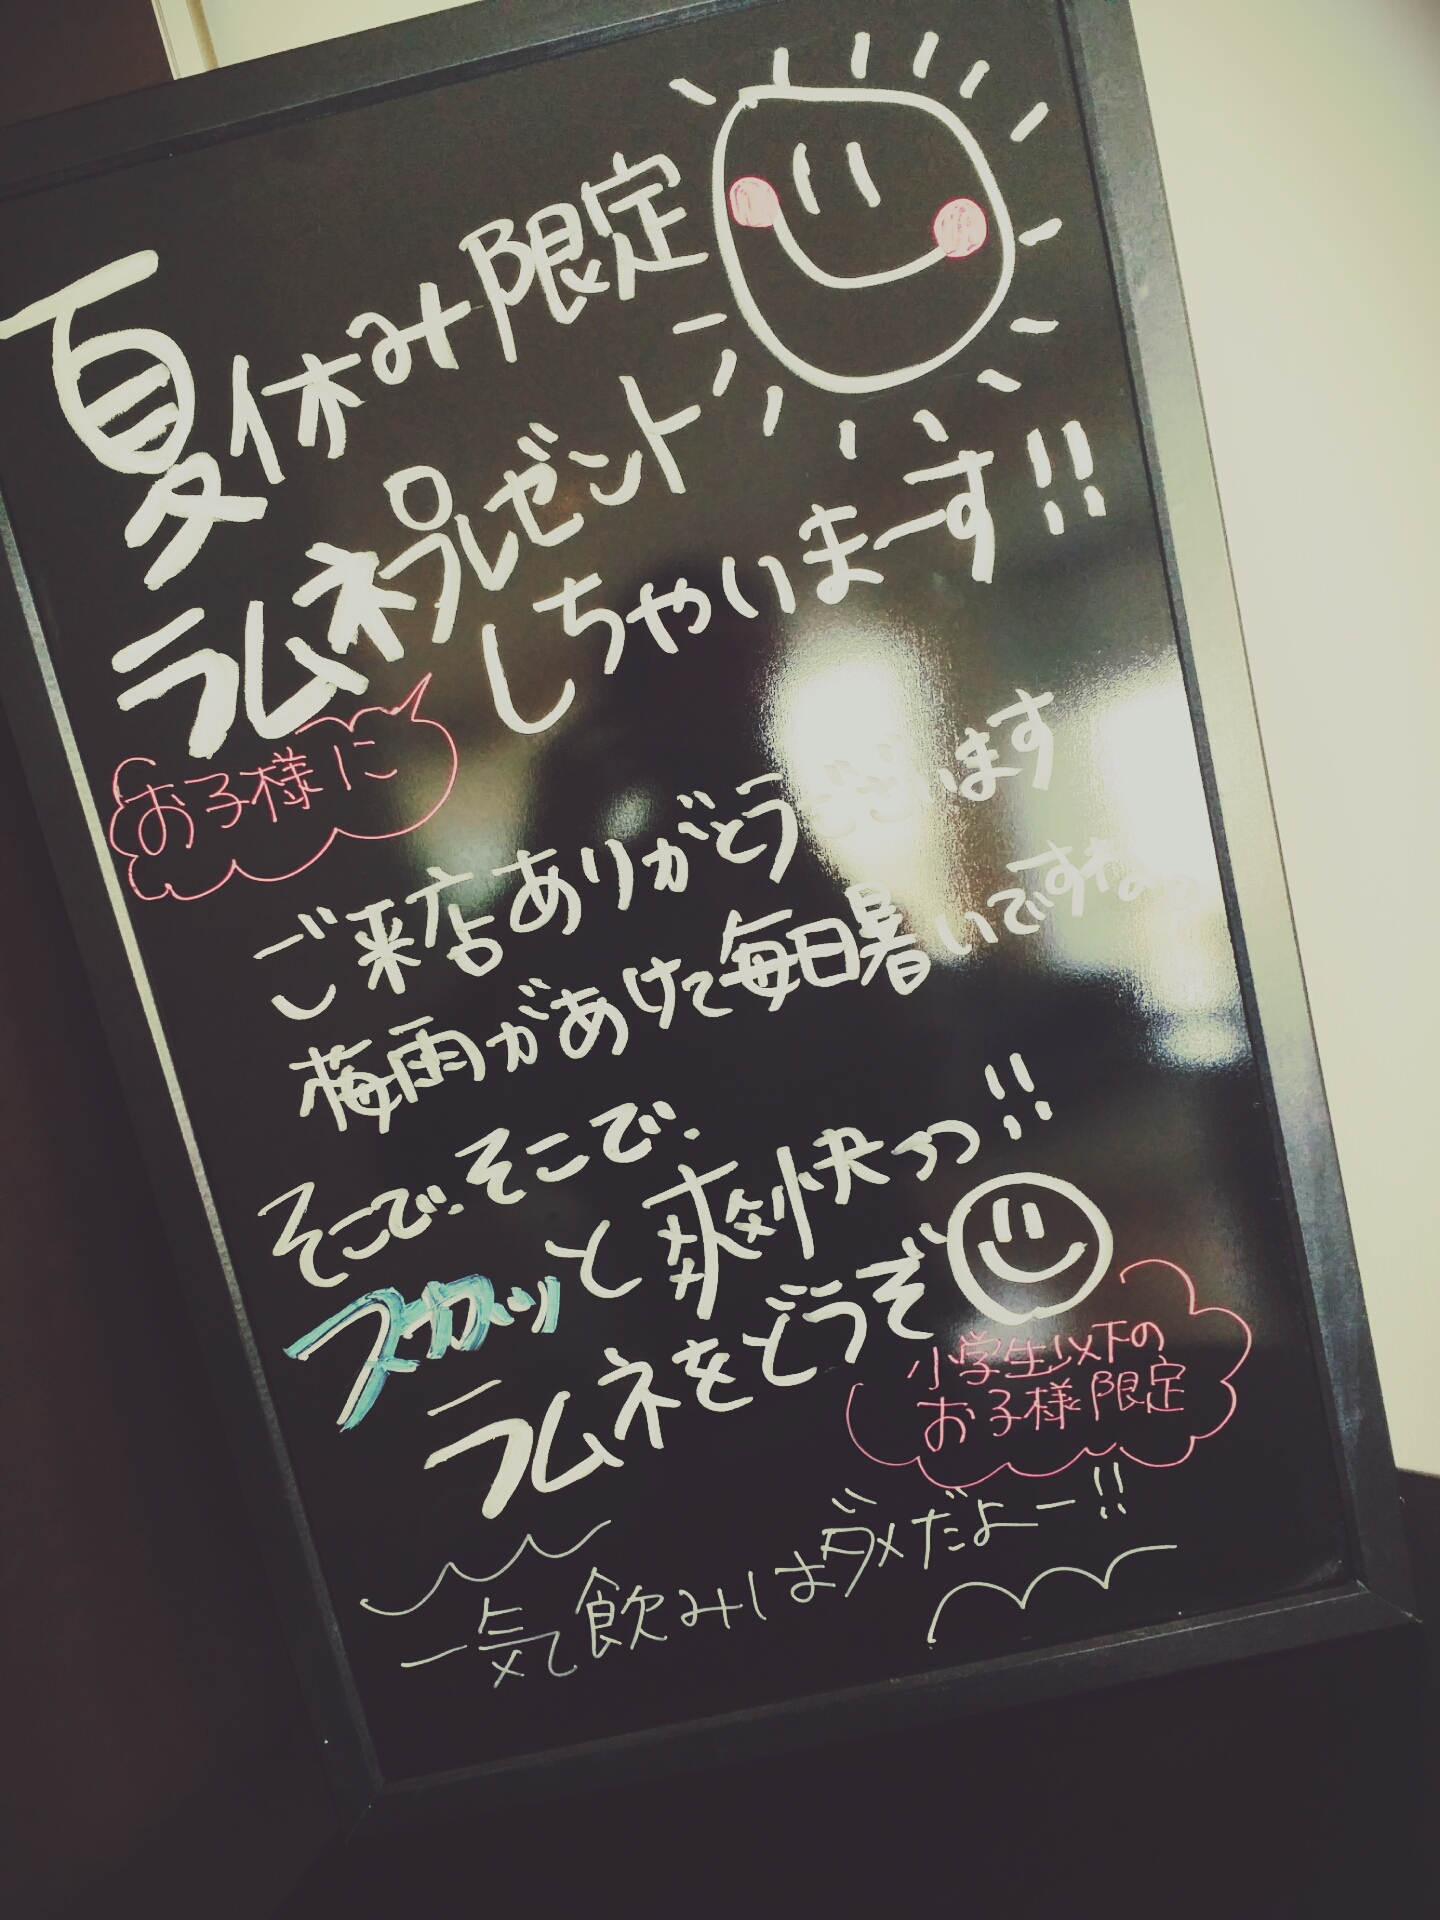 夏休み限定
ラムネプレゼント
しちゃいまーす!!
お子様に
ご来店ありがとうございます
梅雨があけて毎日暑いですね。
そこで、そこで、
スカッと爽快っっ!!
ラムネをどうぞ
小学生以下の
お子様限定
一気飲みはダメだよー!!